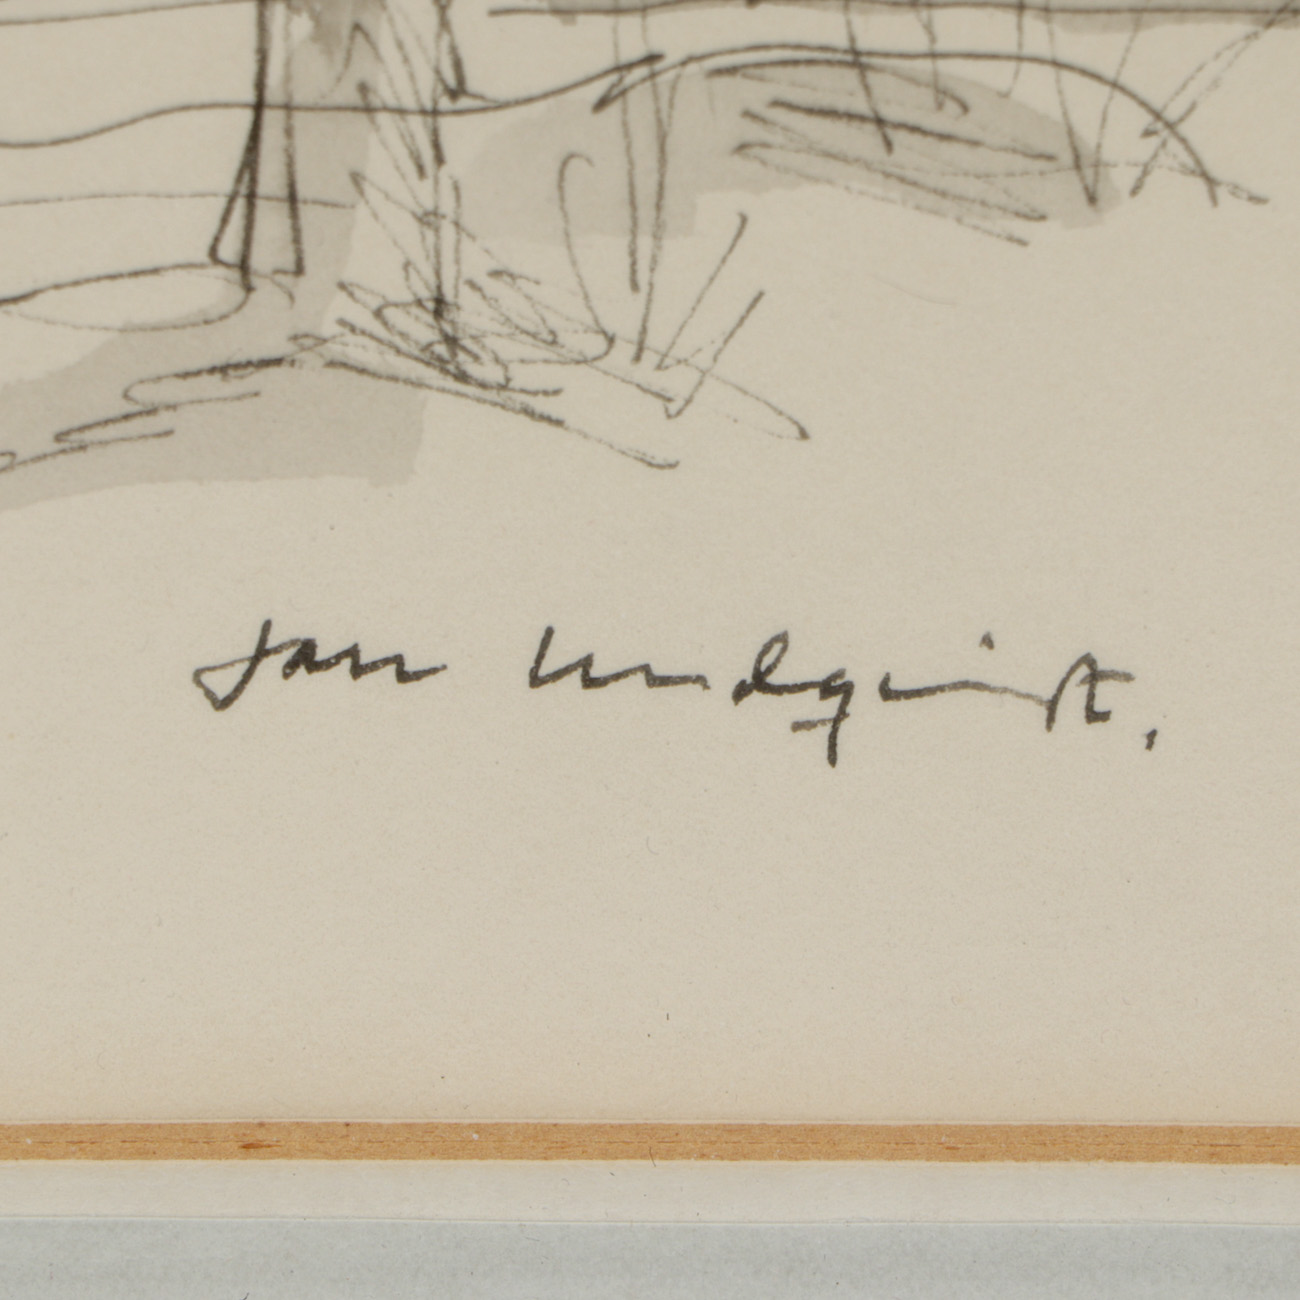 Jan Lindqvist.